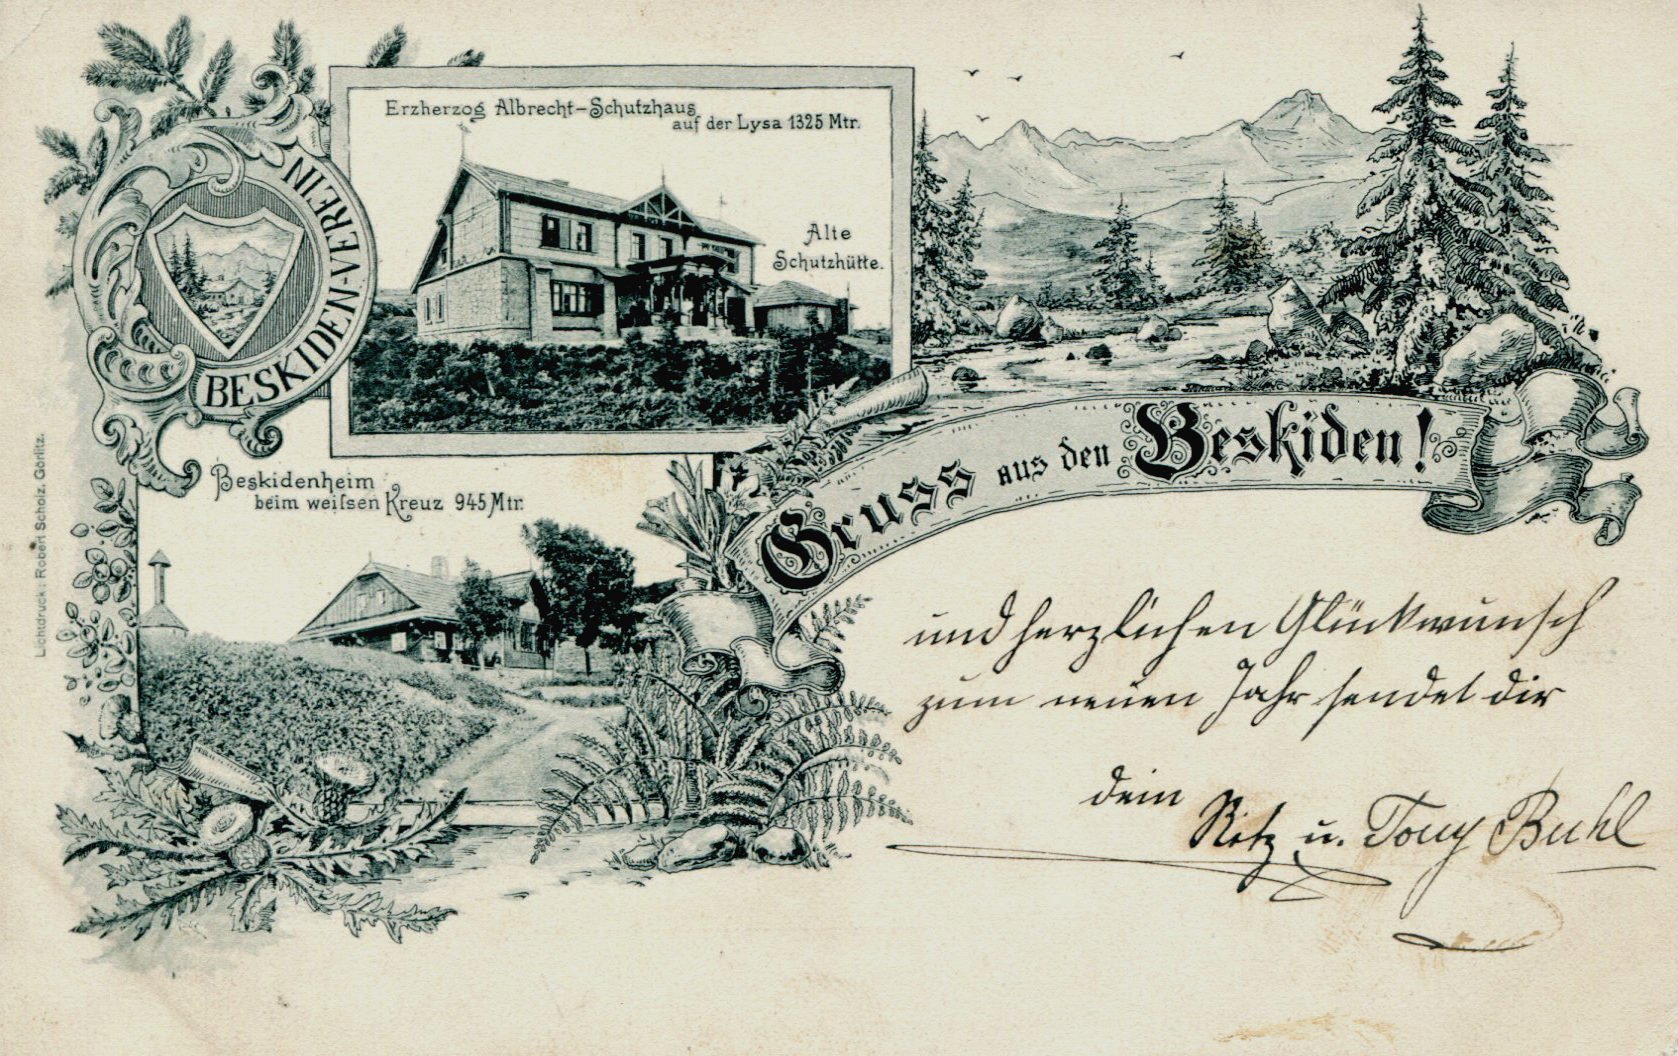 BESKIDEN-VEREIN
Erzherzog Albrecht-Schutzhaus
auf der Lysa 1325 Mtr.
Alte
Schutzhütte.
Beskidenheim
beim weissen Kreuz 945 Mtr.
Gruss aus den Beskiden!
und herzlichen Glückwunsch
zum neuen Jahr sendet dir
dein
u. Tony Buhl
Lichtdruck: Robert Scholz, Görlitz.